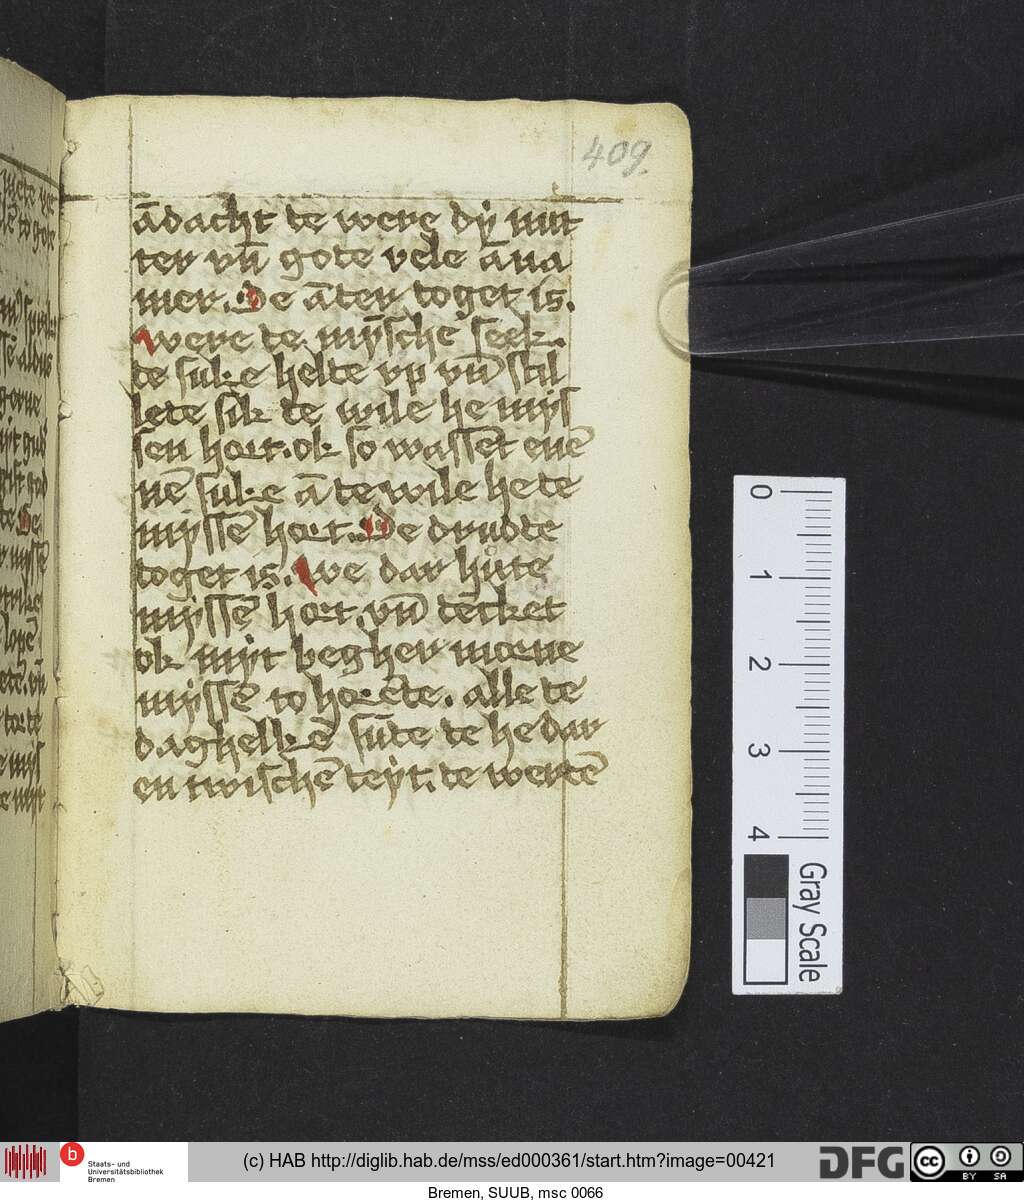 409.
ādacht te were dẏ nut
ter vn̄ gote vele āna
mer. De āter toget is.
were te mȳsche seek.
te suke helte vp vn̄ stil
lete sik te wile he mẏs
sen hort. ok so wassēt enē
nē suke ā te wile he te
mẏssē hort. De drudte
toget is. we dar hute
mẏssē hort. vn̄ tēcket
ok mẏt begher morne
mẏssē to horēte. alle te
daghelkē sūte te he dar
en twischē teẏt. te wertē
0
1
2
3
4
Gray Scale
b Staats- und
Universitätsbibliothek
Bremen
(c) HAB http://diglib.hab.de/mss/ed000361/start.htm?image=00421
DFG
cc BY SA
Bremen, SUUB, msc 0066